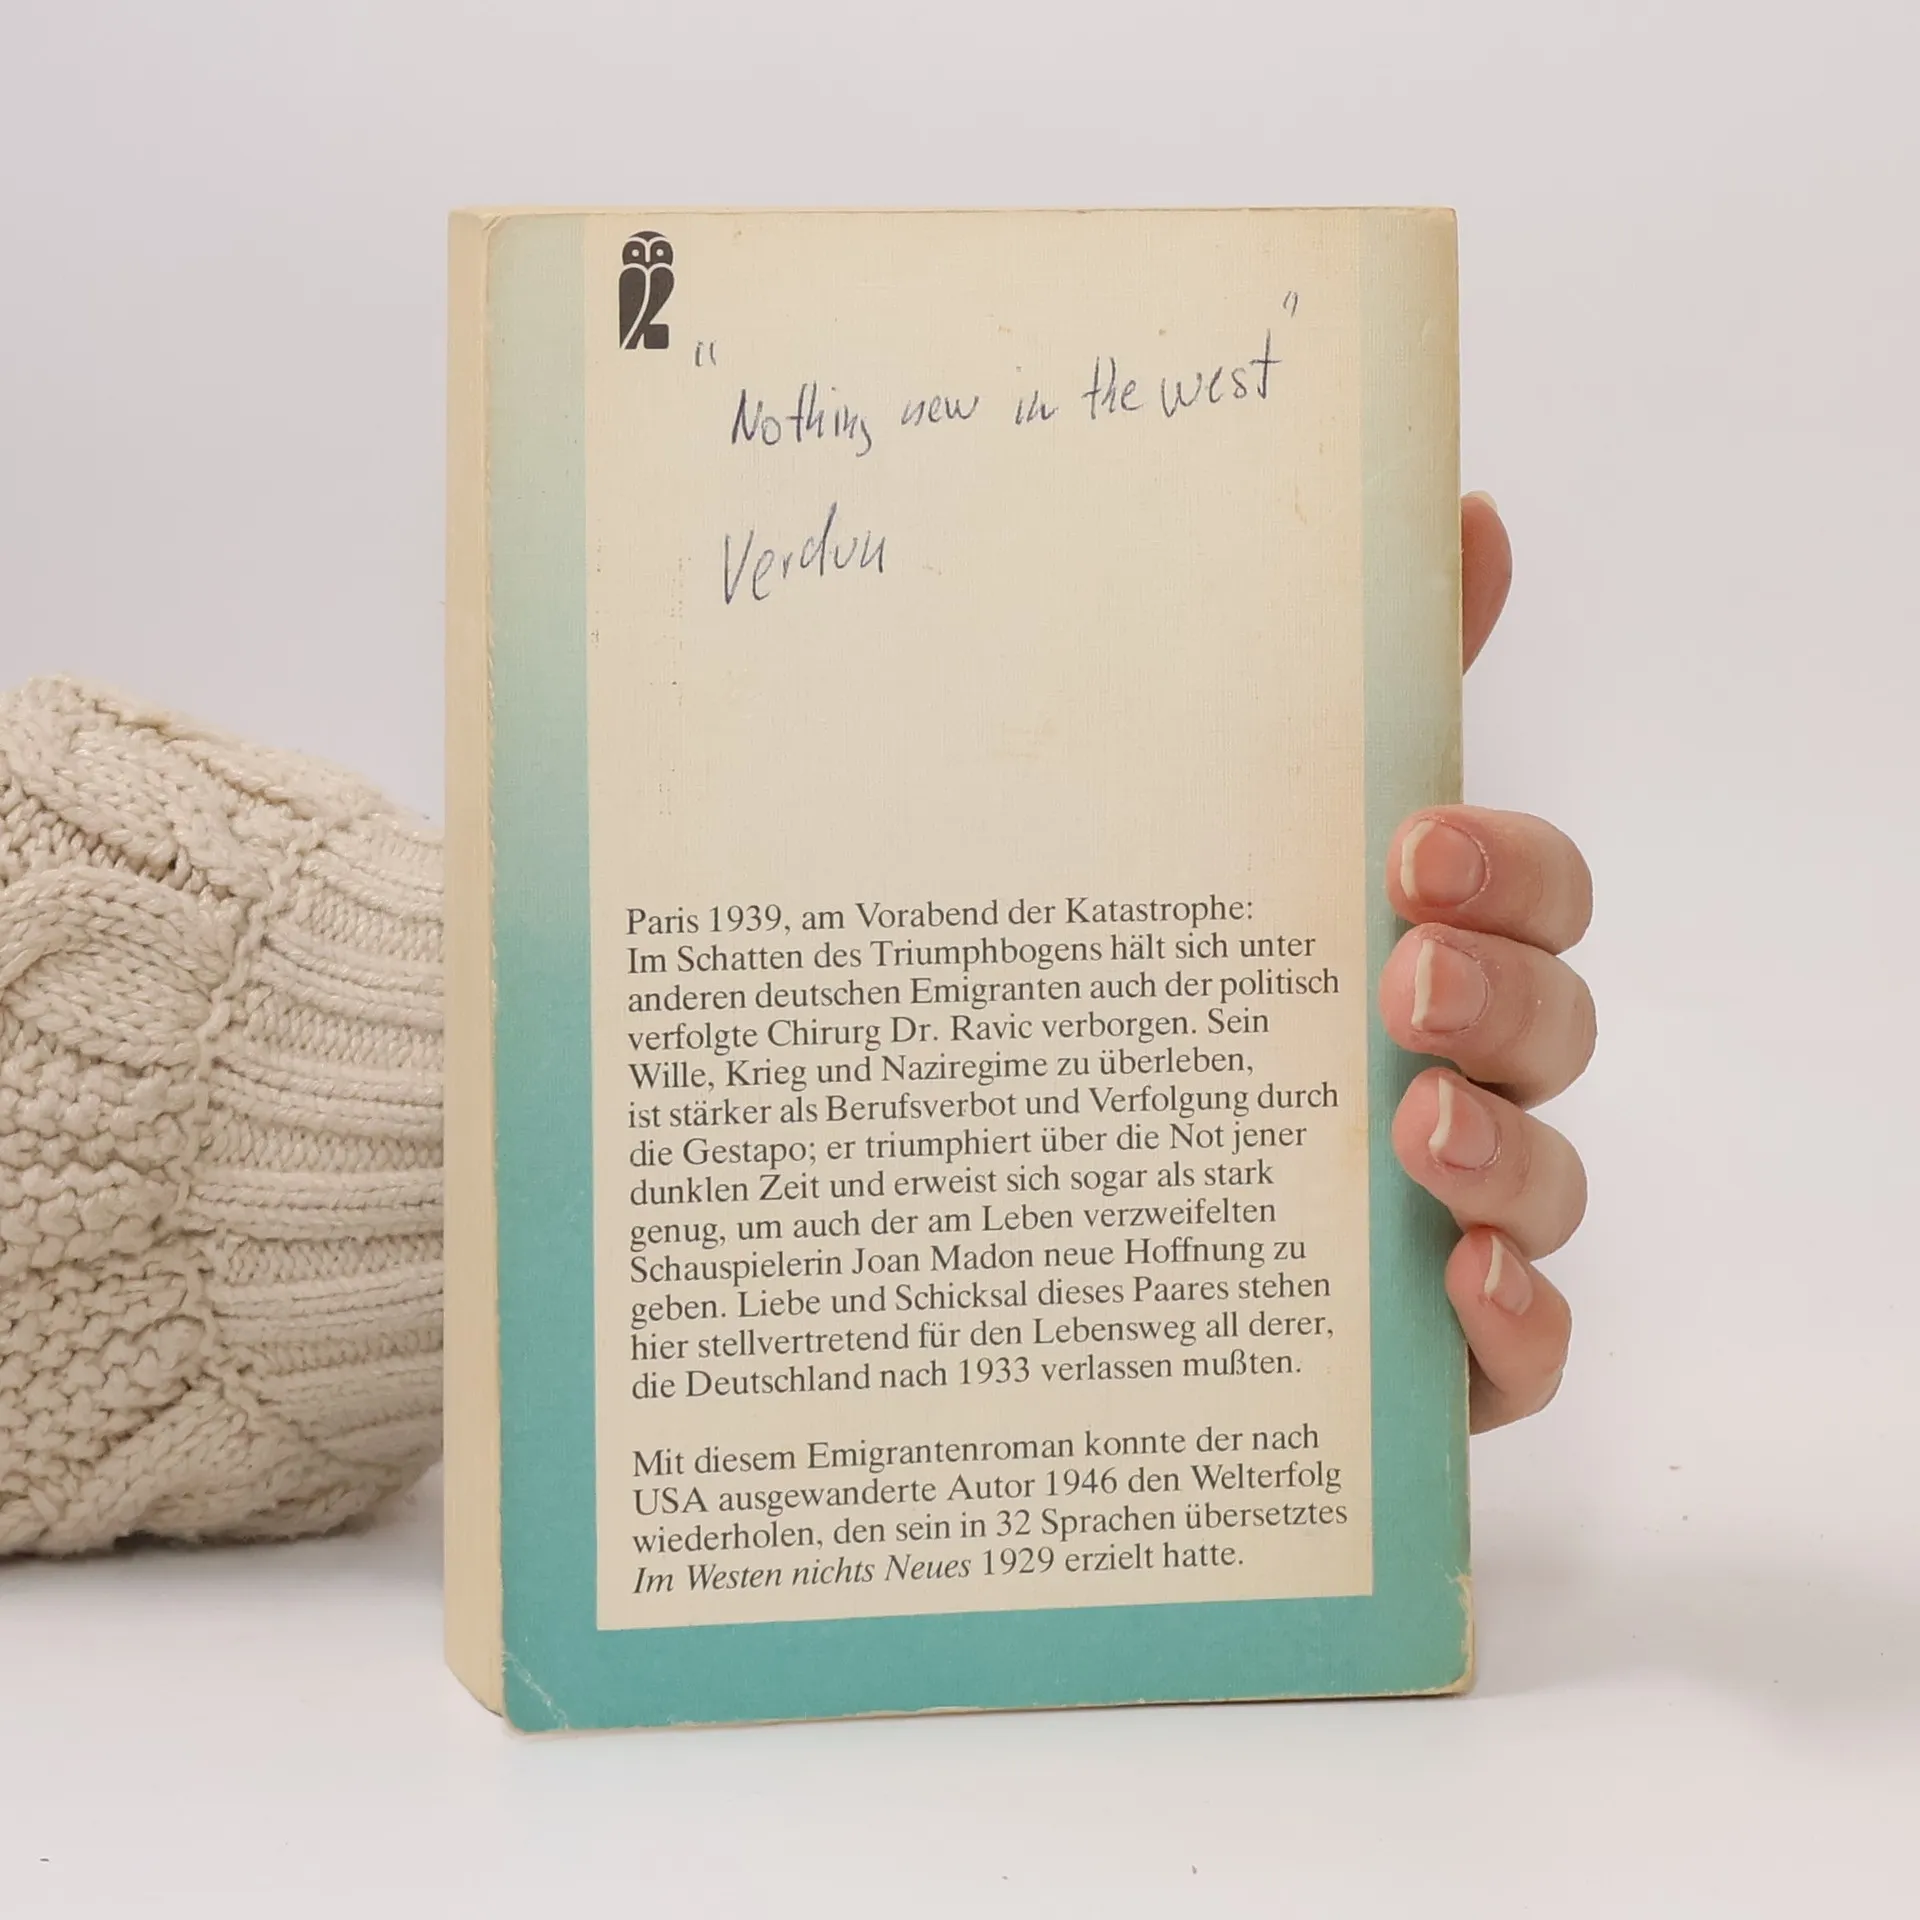 "Nothing new in the west"
Verdun
Paris 1939, am Vorabend der Katastrophe:
Im Schatten des Triumphbogens hält sich unter
anderen deutschen Emigranten auch der politisch
verfolgte Chirurg Dr. Ravic verborgen. Sein
Wille, Krieg und Naziregime zu überleben,
ist stärker als Berufsverbot und Verfolgung durch
die Gestapo; er triumphiert über die Not jener
dunklen Zeit und erweist sich sogar als stark
genug, um auch der am Leben verzweifelten
Schauspielerin Joan Madon neue Hoffnung zu
geben. Liebe und Schicksal dieses Paares stehen
hier stellvertretend für den Lebensweg all derer,
die Deutschland nach 1933 verlassen mußten.
Mit diesem Emigrantenroman konnte der nach
USA ausgewanderte Autor 1946 den Welterfolg
wiederholen, den sein in 32 Sprachen übersetztes
Im Westen nichts Neues 1929 erzielt hatte.